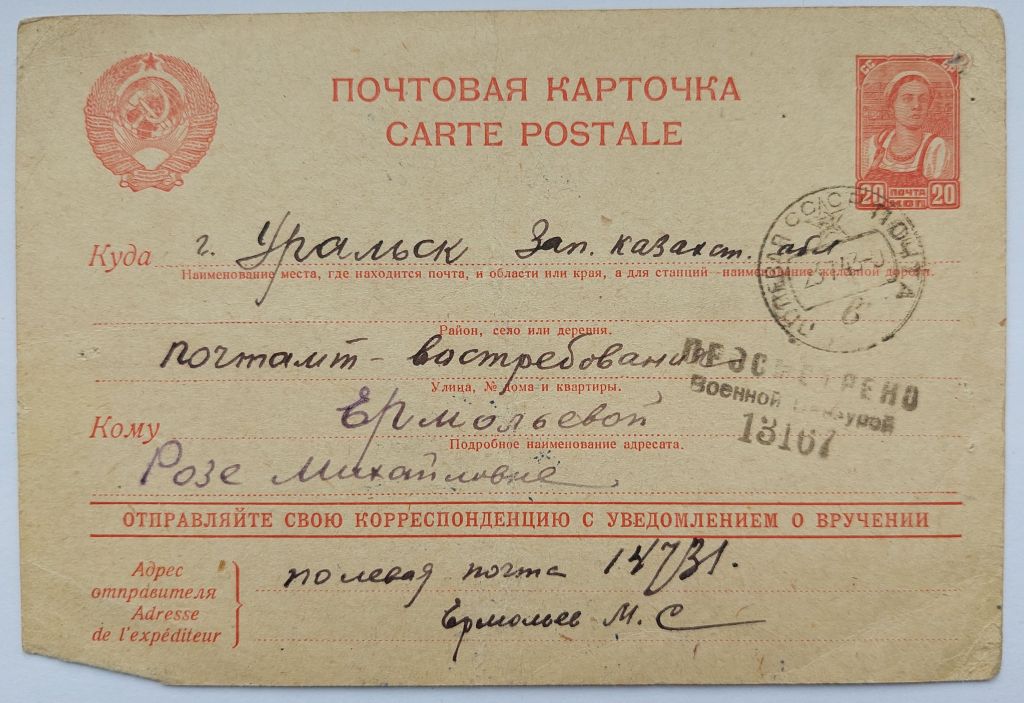 ПОЧТОВАЯ КАРТОЧКА
CARTE POSTALE
20 ПОЧТА 20
КОП
Куда г. Уральск Зап. казахст. обл
Наименование места, где находится почта, и области или края, а для станций – наименование железной дороги.
ПОЛЕВАЯ ПОЧТА
Район, село или деревня.
почтамт – востребования
Улица, № дома и квартиры.
ПРОСМОТРЕНО
Военной Цензурой
13167
Кому Ермольевой
Подробное наименование адресата.
Розе Михайловне
ОТПРАВЛЯЙТЕ СВОЮ КОРРЕСПОНДЕНЦИЮ С УВЕДОМЛЕНИЕМ О ВРУЧЕНИИ
Адрес
отправителя
Adresse
de l'expéditeur
полевая почта 14731.
Ермольев М. С